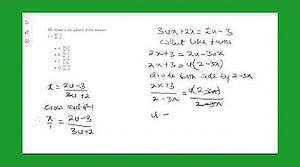 x = 2u-3 / 3u+2
cross multiply
x/1 = 2u-3 / 3u+2
3ux+2x = 2u-3
collect like terms
2x+3 = 2u-3ux
2x+3 = u(2-3x)
divide both side by 2-3x
2x+3 / 2-3x = u(2-3x) / 2-3x
u =